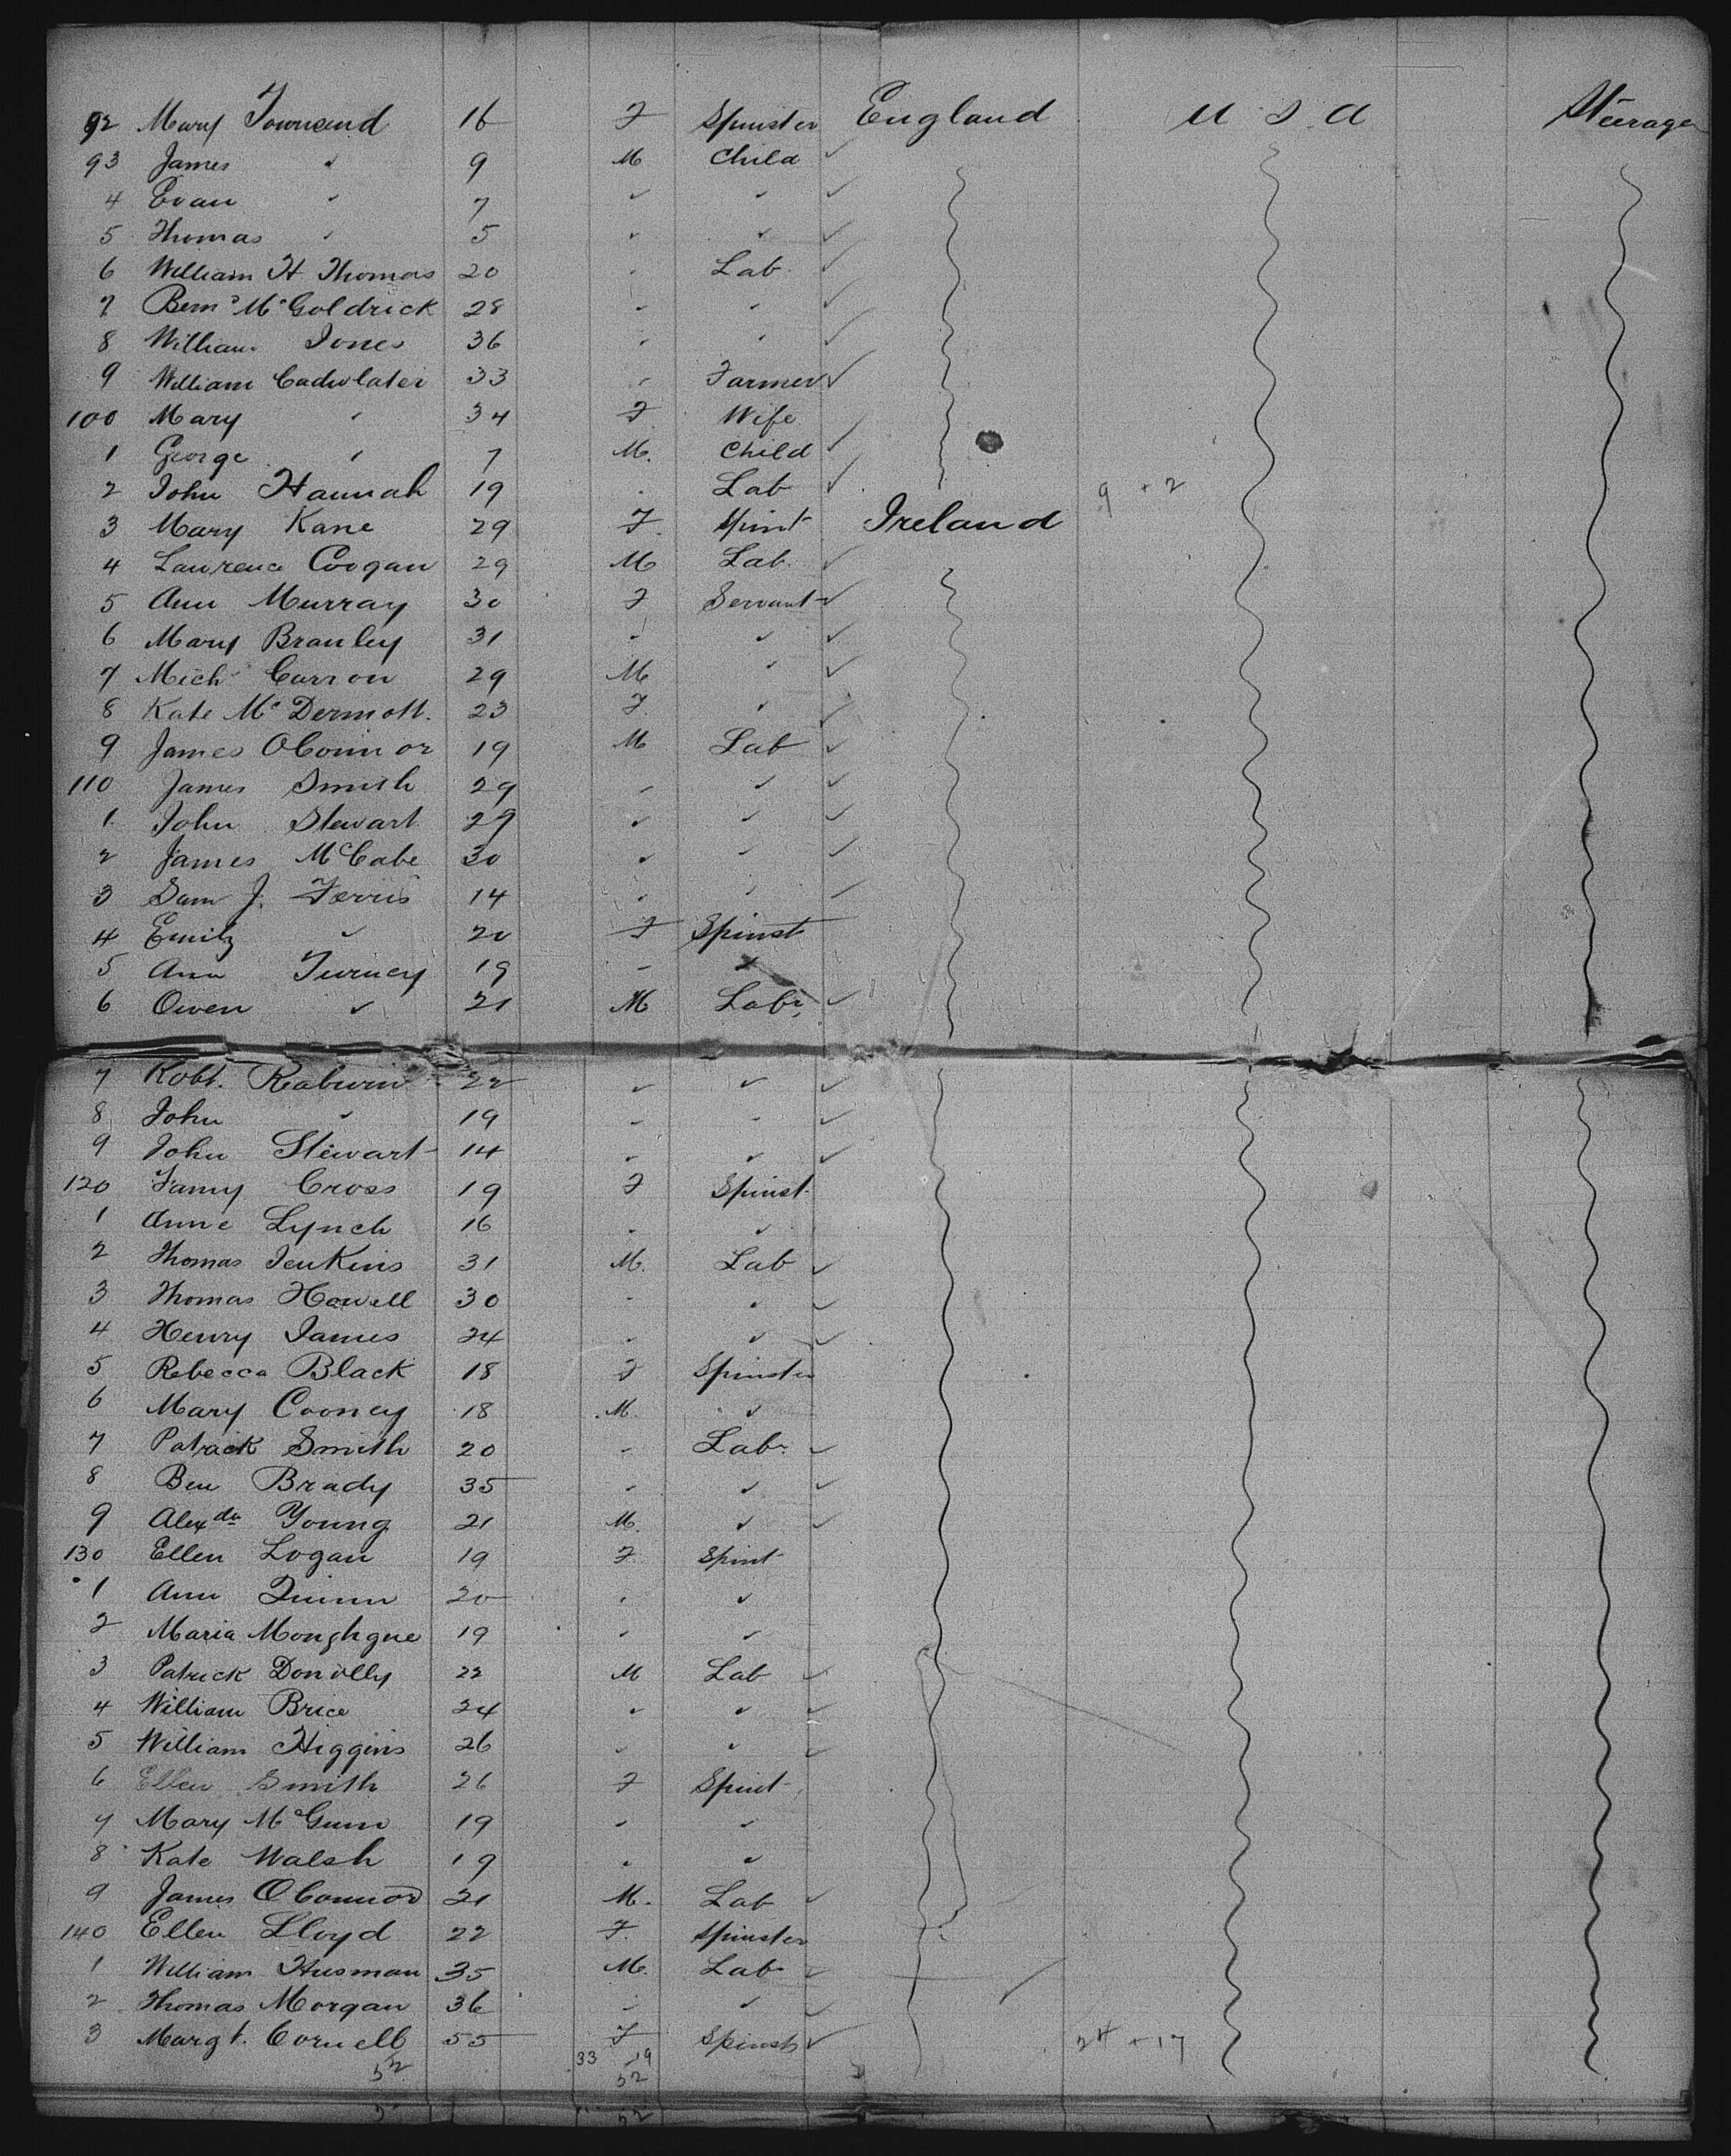 92 Mary Townend 16 F Spinster England U S A Steerage
93 James " 9 M Child ✓
4 Evan " 7 " " ✓
5 Thomas " 5 " " ✓
6 William H Thomas 20 " Lab. ✓
7 McGoldrick 28 " " ✓
8 William Jones 36 " " ✓
9 William Cadwlater 33 " Farmer ✓
100 Mary " 34 F Wife
1 George " 7 M. Child ✓
2 John Hannah 19 " Lab ✓ 9 + 2
3 Mary Kane 29 F. Spinst Ireland
4 Lawrence Coogan 29 M Lab. ✓
5 Ann Murray 30 F Servant ✓
6 Mary Branley 31 " " ✓
7 Mich Curron 29 M " ✓
8 Kate McDermott. 23 F. " ✓
9 James OConnor 19 M Lab ✓
110 James Smith 29 " " ✓
1 John Stewart 29 " " ✓
2 James McCabe 30 " " ✓
3 Sam J. Ferris 14 " " ✓
4 Emily " 20 F Spinst
5 Ann Turney 19 " "
6 Owen " 21 M Labr ✓
7 Robt. 22 " " ✓
8 John " 19 " " ✓
9 John Stewart 14 " " ✓
120 Fanny Cross 19 F Spinst.
1 Anne Lynch 16 " "
2 Thomas Jenkins 31 M. Lab ✓
3 Thomas Howell 30 " " ✓
4 Henry James 24 " " ✓
5 Rebecca Black 18 F Spinster
6 Mary Cooney 18 M. "
7 Patrick Smith 20 " Labr ✓
8 Ben Brady 35 " " ✓
9 Alexdr Young 21 M. " ✓
130 Ellen Logan 19 F Spinst
1 Ann Quinn 20 " "
2 Maria Monghgue 19 " "
3 Patrick Donolly 22 M Lab ✓
4 William Brice 24 " " ✓
5 William Higgins 26 " " ✓
6 Ellen Smith 26 F Spinst
7 Mary McGunn 19 " "
8 Kate Walsh 19 " "
9 James OConnor 21 M. Lab ✓
140 Ellen Lloyd 22 F. Spinster
1 William Husman 35 M. Lab ✓
2 Thomas Morgan 36 " " ✓
3 Margt. Cornell 55 F Spinst ✓ 24 + 17
52 33 19
52
52